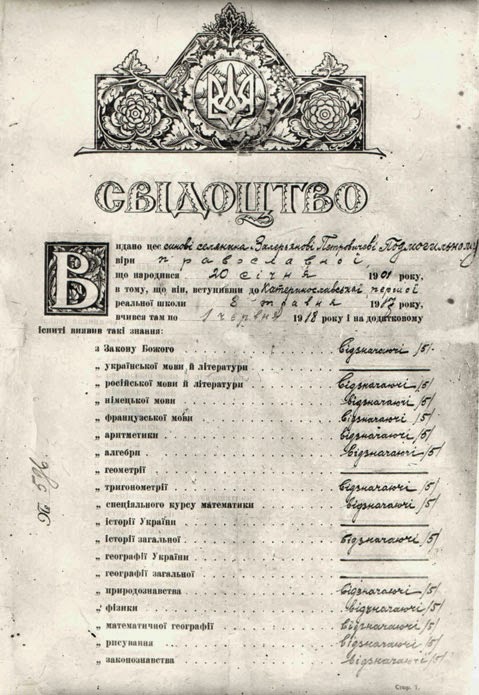 СВІДОЦТВО
Видано цеє синові селянина Валеріянові Петровичеві Подмогильному
віри православної
що народився 20 січня 1901 року,
в тому, що він, вступивши до Катеринославської першої
реальної школи 8 травня 1917 року,
вчився там по 1 червня 1918 року і на додатковому
іспиті виявив такі знання:
з Закону Божого відзначаючі /5/
„ української мови й літератури
„ російської мови й літератури відзначаючі /5/
„ німецької мови відзначаючі /5/
„ французської мови відзначаючі /5/
„ аритметики відзначаючі /5/
„ алгебри відзначаючі /5/
„ геометрії
„ тригонометрії відзначаючі /5/
„ спеціального курсу математики відзначаючі /5/
„ історії України
„ історії загальної відзначаючі /5/
„ географії України
„ географії загальної
„ природознавства відзначаючі /5/
„ фізики відзначаючі /5/
„ математичної географії відзначаючі /5/
„ рисування відзначаючі /5/
„ законознавства відзначаючі /5/
№ 596
Стор. 1.